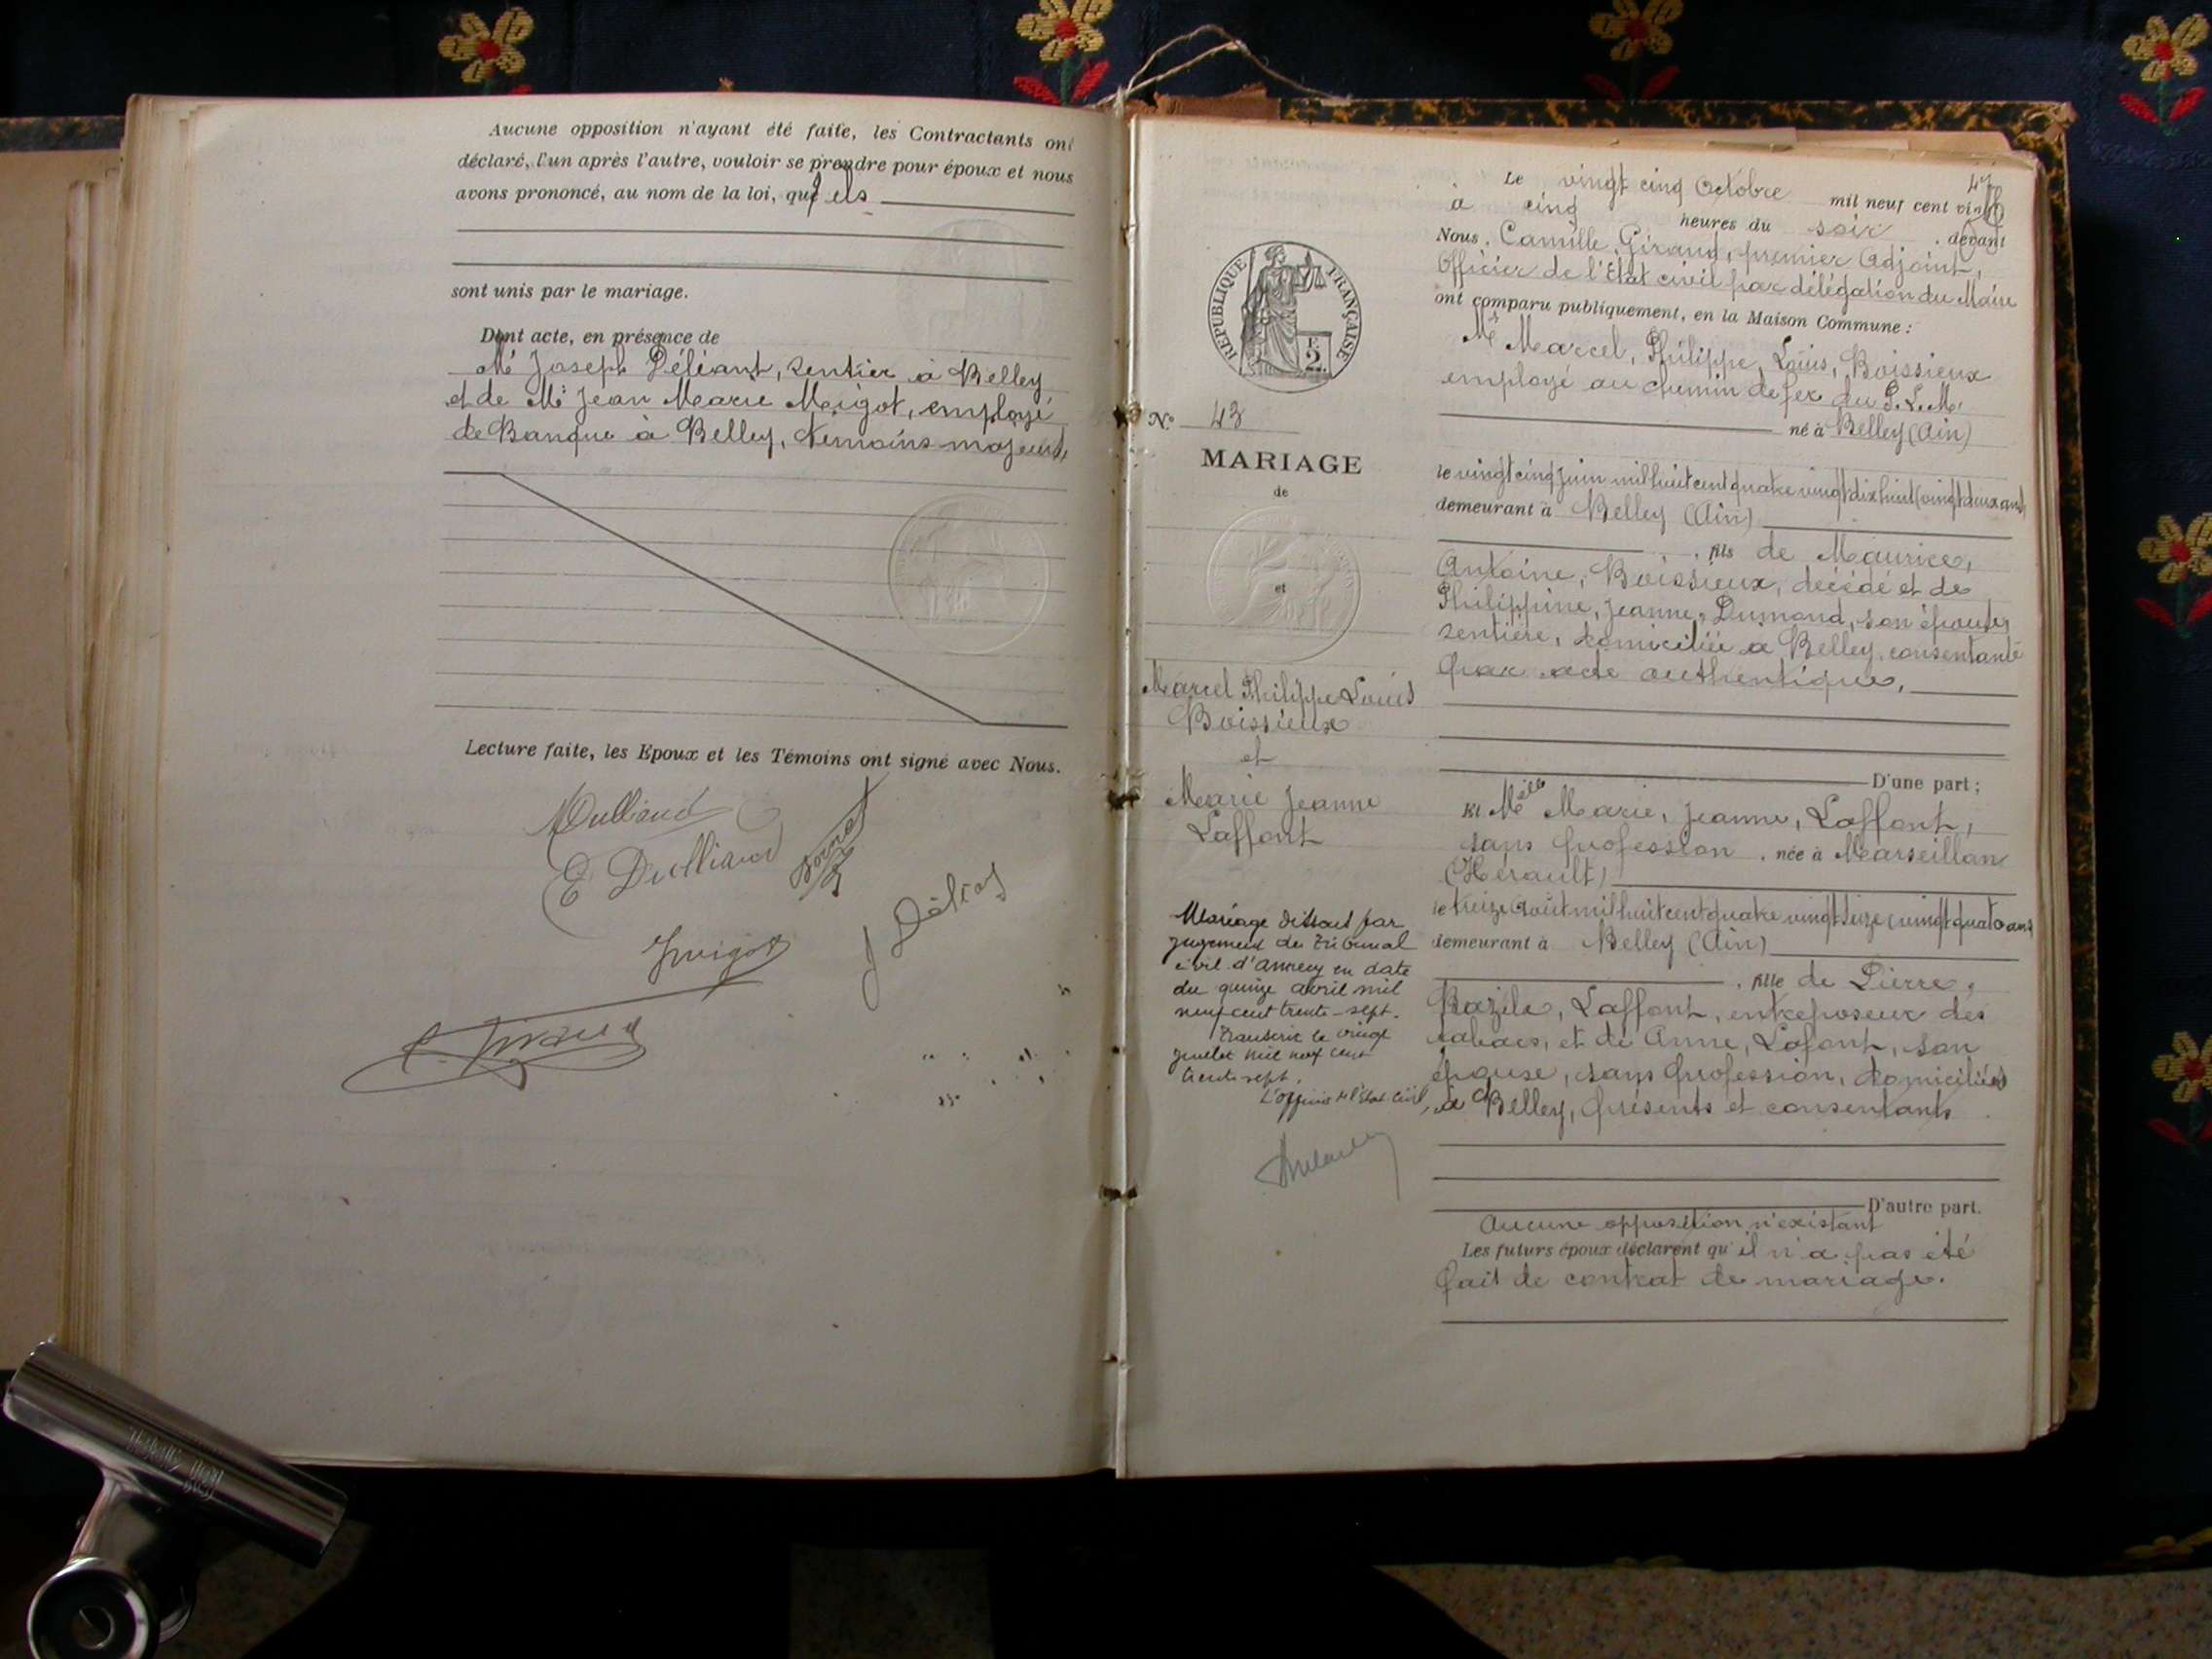 Aucune opposition n'ayant été faite, les Contractants ont
déclaré, l'un après l'autre, vouloir se prendre pour époux et nous
avons prononcé, au nom de la loi, qu'ils
sont unis par le mariage.
Dont acte, en présence de
Mr Joseph Déléant, rentier à Belley
et de Mr Jean Marie Meigot, employé
de Banque à Belley, témoins majeurs,
Lecture faite, les Epoux et les Témoins ont signé avec Nous.
E Dulliand
C. Giraud
47
Le vingt cinq Octobre mil neuf cent vingt
à cinq heures du soir, devant
Nous, Camille Giraud, premier Adjoint,
Officier de l'Etat civil par délégation du Maire
ont comparu publiquement, en la Maison Commune :
RÉPUBLIQUE FRANÇAISE
2
Mr Marcel, Philippe, Louis, Boissieux
employé au chemin de fer du P.L.M.
né à Belley (Ain)
N° 43
MARIAGE
de
et
Marcel Philippe Louis
Boissieux
et
Marie Jeanne
Laffont
le vingt cinq juin mil huit cent quatre vingt dix huit (vingt deux ans)
demeurant à Belley (Ain)
, fils de Maurice,
Antoine, Boissieux, décédé et de
Philippine, Jeanne, Dumond, son épouse
rentière, domiciliée à Belley, consentante
par acte authentique,
D'une part ;
Et Melle Marie, Jeanne, Laffont,
sans profession, née à Marseillan
(Hérault)
le treize Août mil huit cent quatre vingt seize (vingt quatre ans)
demeurant à Belley (Ain)
, fille de Pierre,
Bazile, Laffont, entreposeur des
tabacs, et de Anne, Lafont, son
épouse, sans profession, domiciliés
à Belley, présents et consentants
D'autre part.
Aucune opposition n'existant
Les futurs époux déclarent qu'il n'a pas été
fait de contrat de mariage.
Mariage dissout par
jugement du Tribunal
civil d'Annecy en date
du quinze avril mil
neuf cent trente-sept.
Transcrit le vingt
juillet mil neuf cent
trente sept.
L'officier de l'état civil,